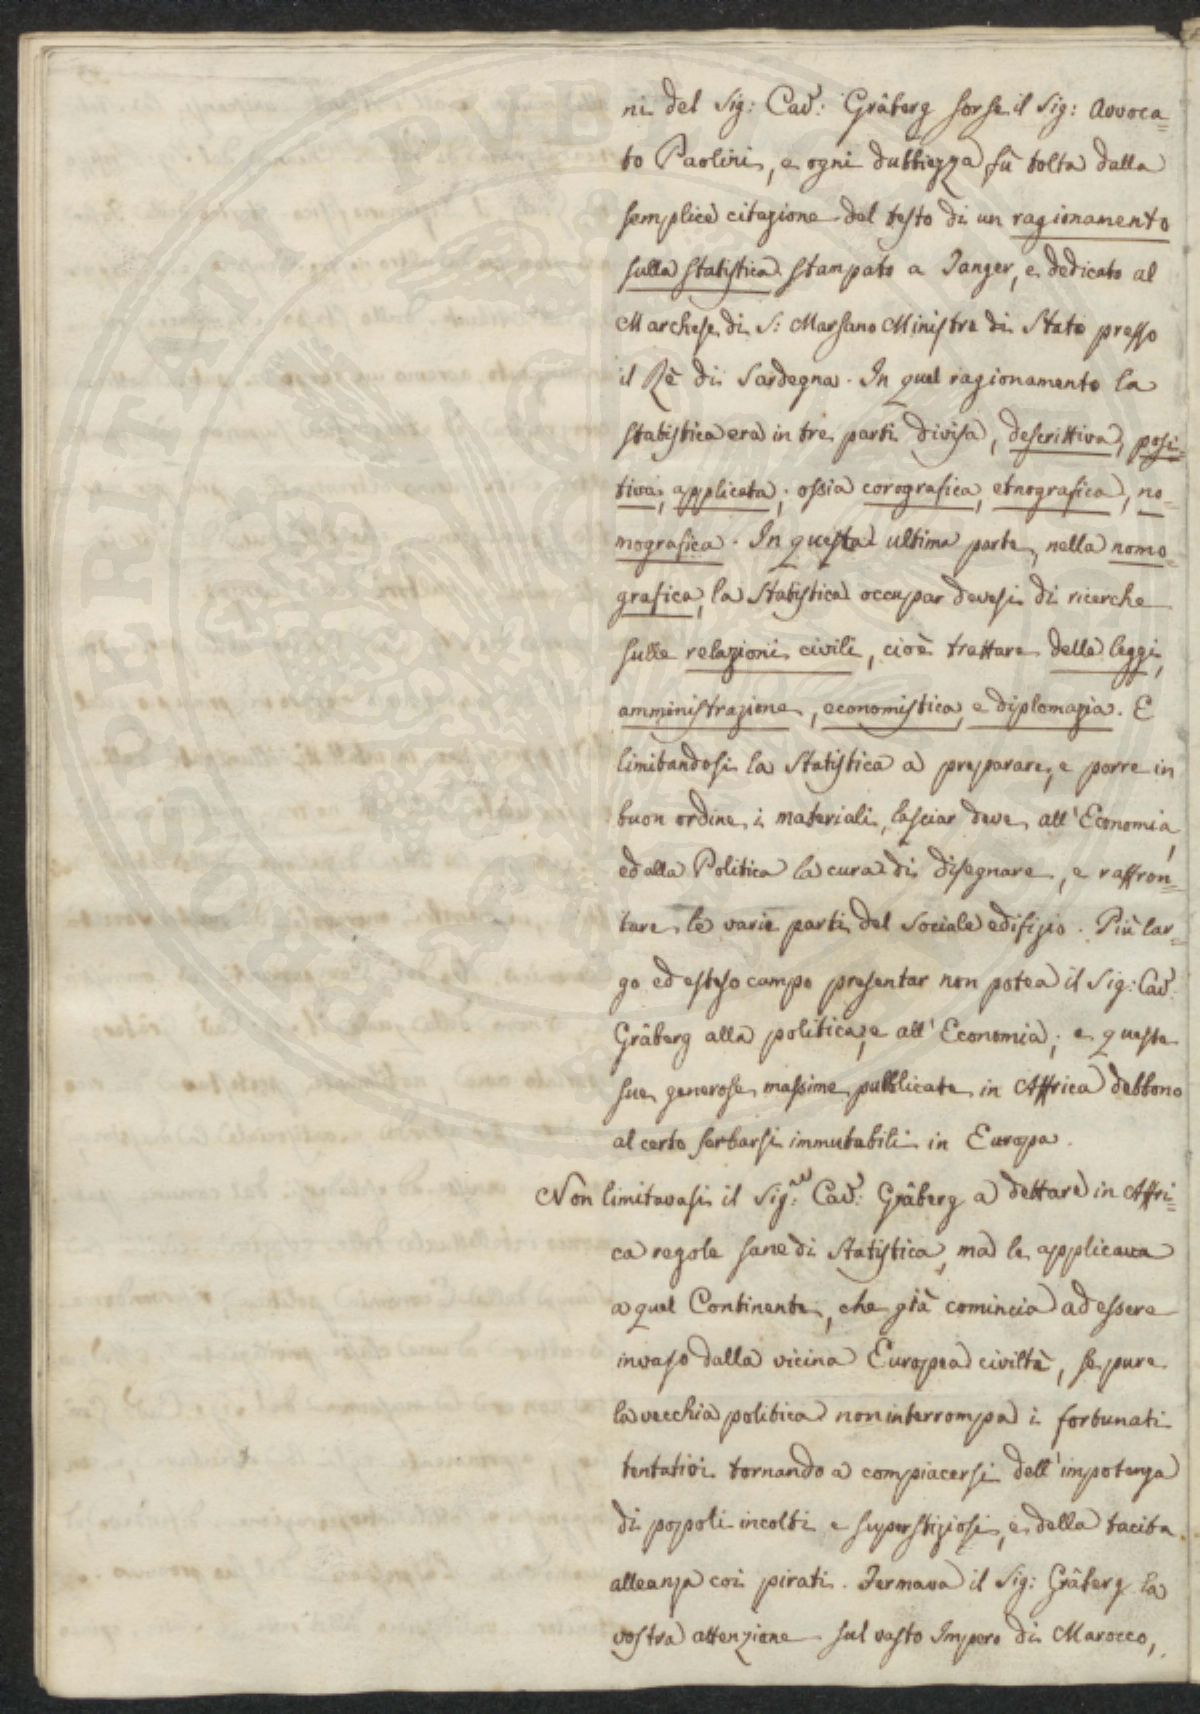 ni del Sig: Cav: Gräberg sorse il Sig: Avvoca=
to Paolini, e ogni dubbiezza fù tolta dalla
semplice citazione del testo di un ragionamento
sulla statistica stampato a Tanger, e dedicato al
Marchese di S: Marsano Ministro di Stato presso
il Rè di Sardegna. In quel ragionamento la
statistica era in tre parti divisa, descrittiva, posi=
tiva, applicata; ossia corografica, etnografica, no=
mografica. In questa ultima parte, nella nomo=
grafica, la Statistica occupar devesi di ricerche
sulle relazioni civili, cioè trattare delle leggi,
amministrazione, economistica, e diplomazia. E
limitandosi la Statistica a preparare, e porre in
buon ordine i materiali, lasciar deve all'Economia,
ed alla Politica la cura di disegnare, e raffron=
tare le varie parti del Sociale edifizio. Più lar=
go ed esteso campo presentar non potea il Sig: Cav:
Gräberg alla politica, e all'Economia; e queste
sue generose massime pubblicate in Affrica debbono
al certo serbarsi immutabili in Europa.
Non limitavasi il Sig:re Cav: Gräberg a dettare in Affri=
ca regole sane di Statistica, ma le applicava
a quel Continente, che già comincia ad essere
invaso dalla vicina Europea civiltà, se pure
la vecchia politica non interrompa i fortunati
tentativi tornando a compiacersi dell'impotenza
di popoli incolti e superstiziosi, e della tacita
alleanza coi pirati. Fermava il Sig: Gräberg la
vostra attenzione sul vasto Impero di Marocco,